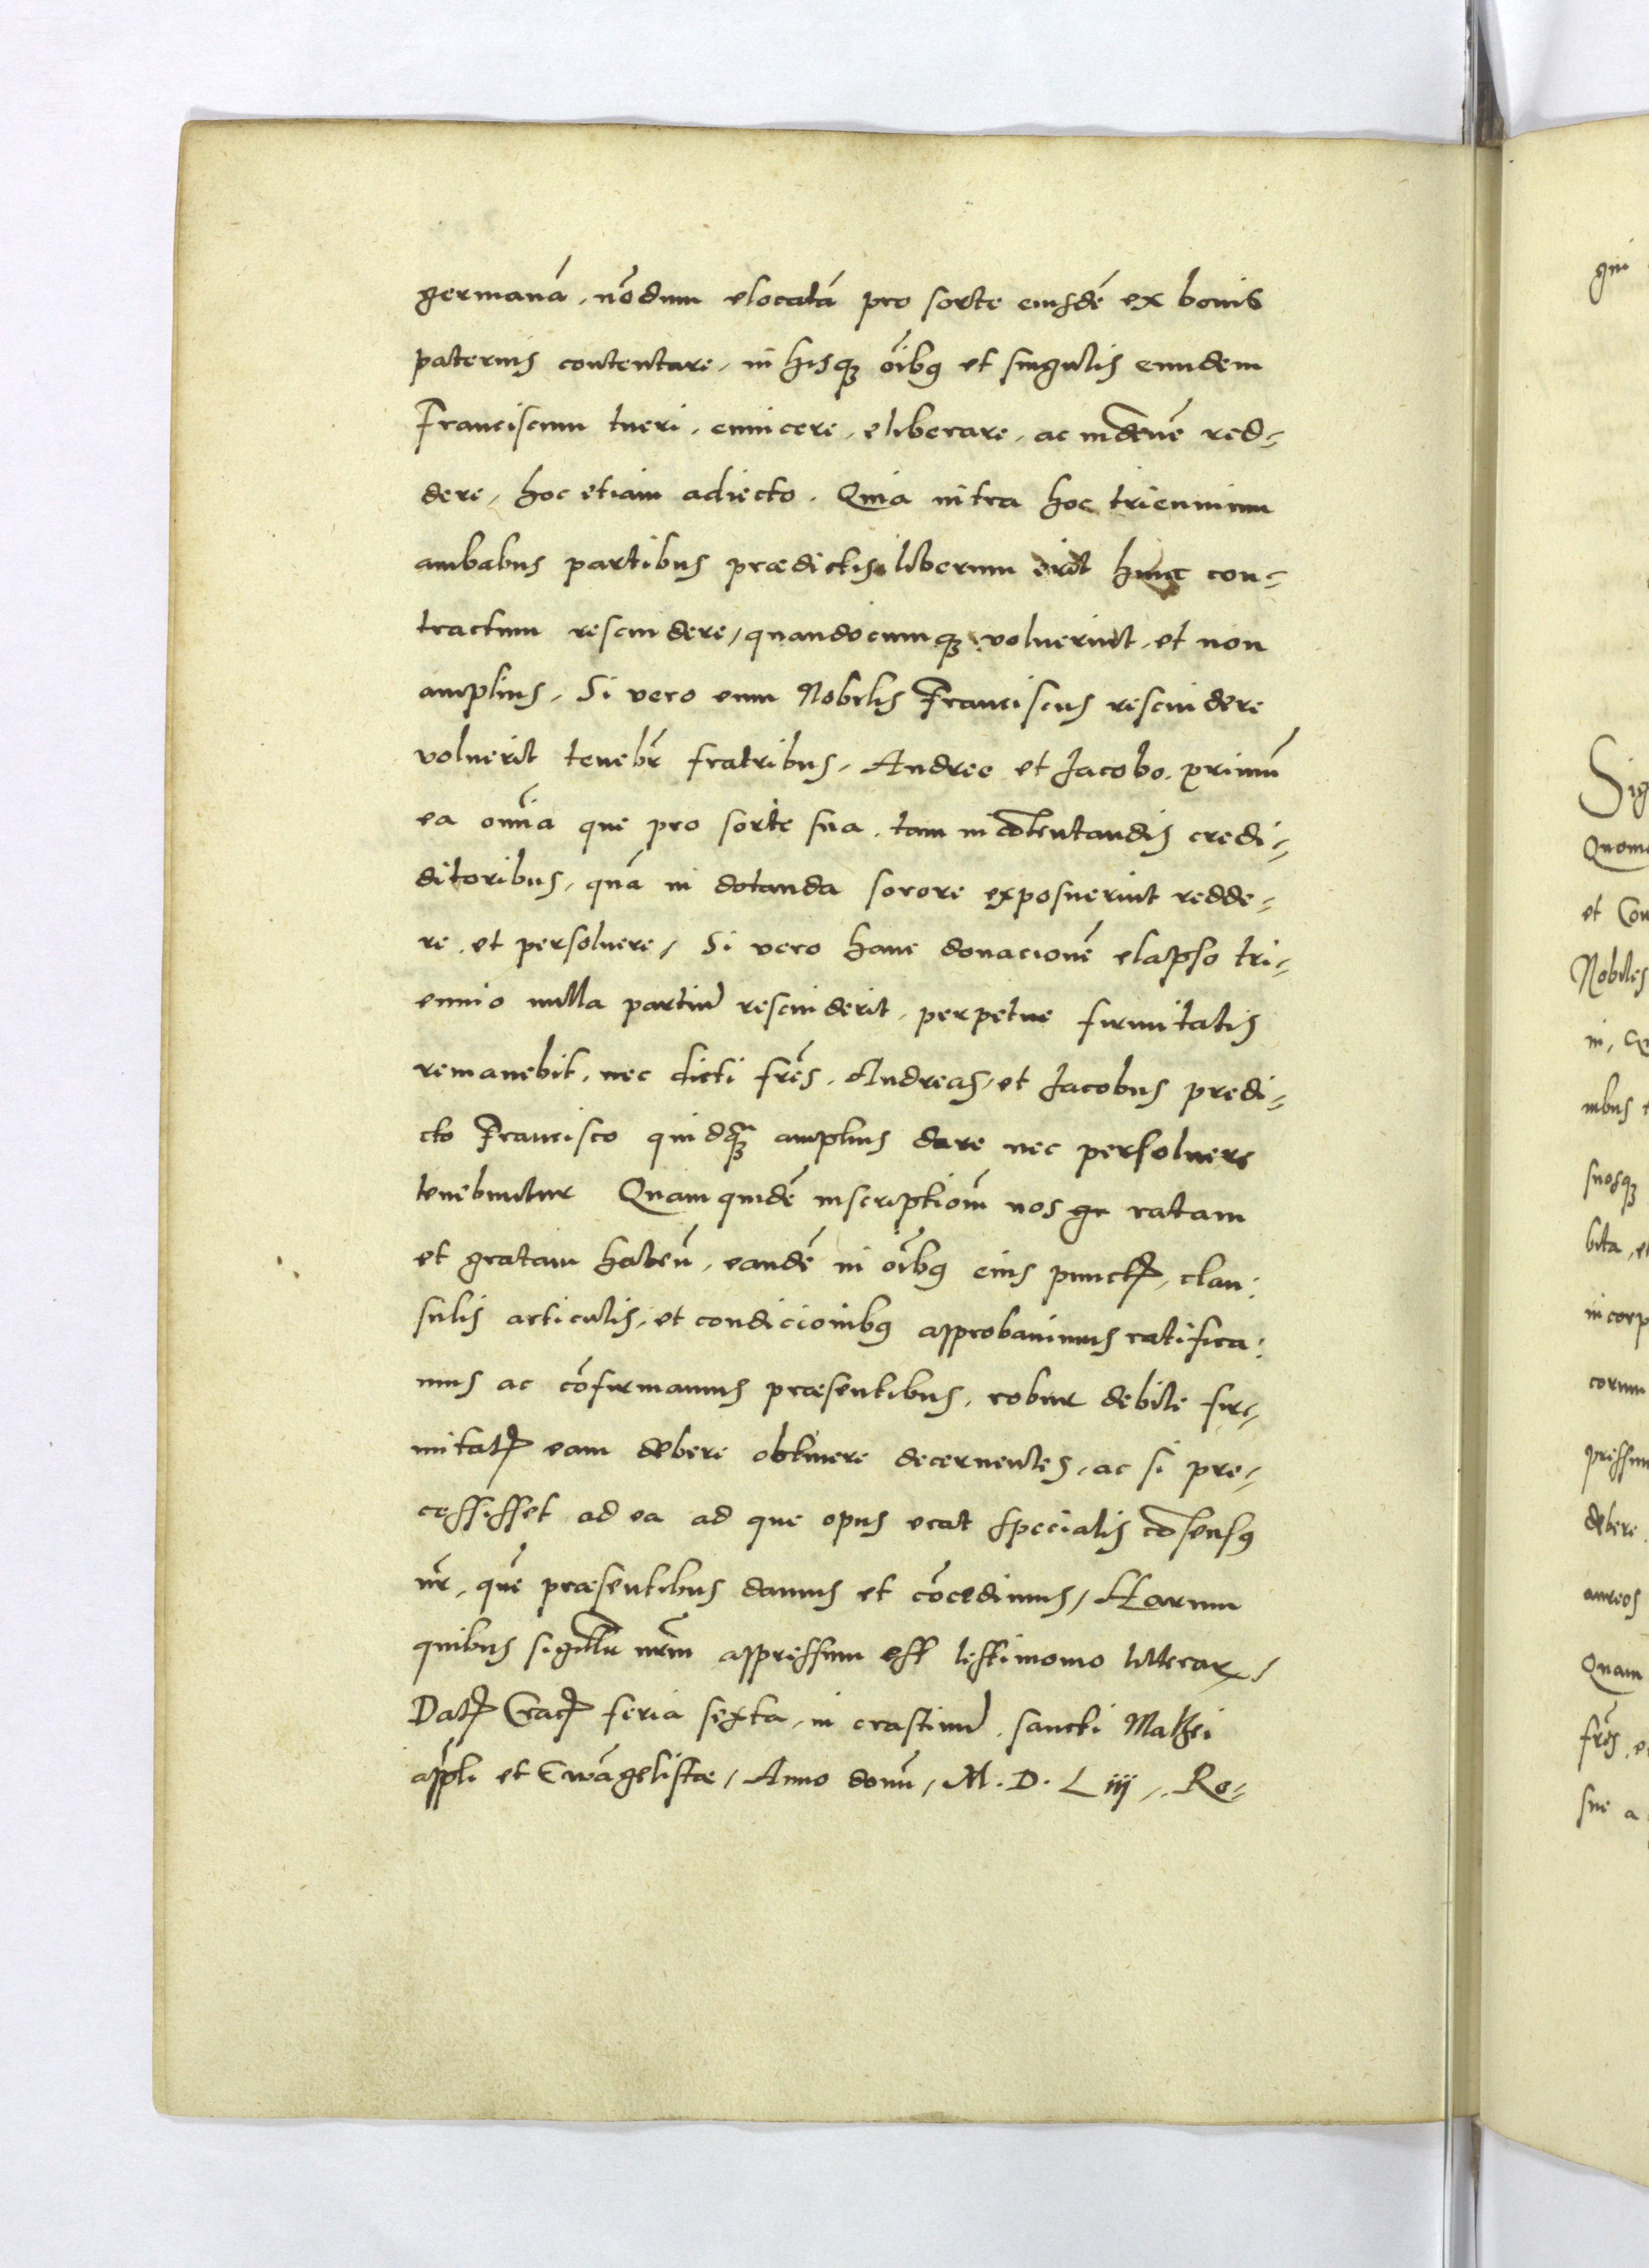 germanā, nōdum elocatā pro sorte eiusdē ex bonis
paternis contentare, in hisq3 oībq et singulis eundem
Franciscum tueri, euincere, eliberare, ac indenē red-
dere, hoc etiam adiecto. Quia intra hoc triennium
ambabus partibus prædictis liberum erit hunc con-
tractum rescindere, quandocumq3 voluerint, et non
amplius, Si vero eum Nobilis Franciscus rescindere
voluerit tenebr̄ fratribus, Andree et Jacobo, primū
ea omīa que pro sorte sua, tam in cōtentandis credi-
ditoribus, quā in dotanda sorore exposuerint redde-
re, et persoluere, Si vero hanc donacionē elapso tri-
ennio nulla partiū resciderit, perpetue firmitatis
remanebit, nec dicti frēs, Andreas, et Jacobus predi-
cto Francisco quidq3 amplius dare nec persoluere
tenebuntur Quam quidē inscriptionē nos gr ratam
et gratam habeñ, eandē in oībq eius punctꝭ, clau:
sulis articulis, et condicionibq approbauimus ratifica:
mus ac cōfirmamus præsentibus, robur debite fir-
mitatꝭ eam debere obtinere decernentes, ac si pre-
cessisset ad ea ad que opus erat specialis cōsensq
nr̄, quē præsentibus damus et cōcedimus, Harum
quibus sigillū nrm̄ appressum est testimonio litterarꝝ,
Datꝭ Cracꝭ feria sexta, in crastinū, sancti Mathei
apl̄i et Ewāgelistæ, Anno domī, M. D. L iij, Re-
gni
Sig
Quom
et Con
Nobiles
suosq3
bita, et
incorp
corum
pressum
debere
aureos
Quam
frēs, e
sue a